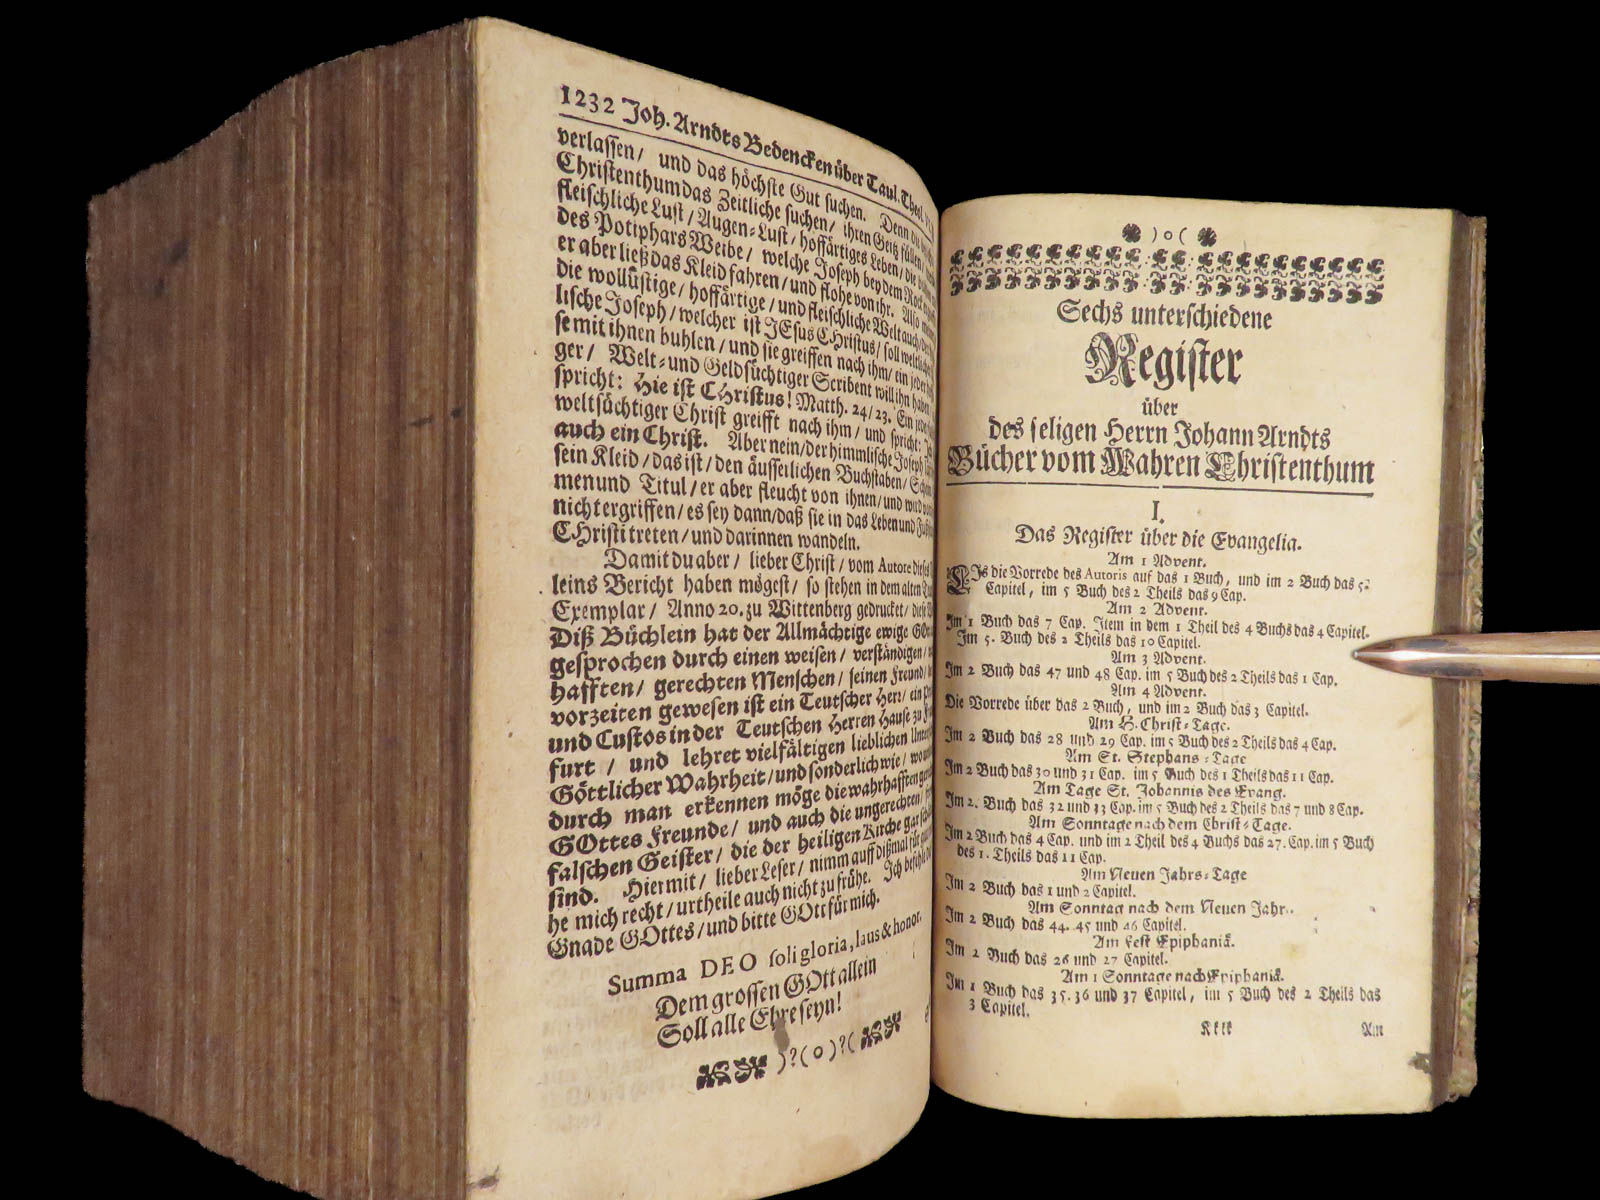 1232 Joh. Arndts Bedencken über Taul. Theol.
verlassen/ und das höchste Gut suchen. Denn
Christenthum das Zeitliche suchen/ ihren Geitz füllen/
fleischliche Lust/ Augen-Lust/ hoffärtiges Leben/ die
des Potiphars Weibe/ welche Joseph bey dem Rock
er aber ließ das Kleid fahren/ und flohe von ihr. Also
die wollüstige/ hoffärtige/ und fleischliche Welt auch/
lische Joseph/ welcher ist JEsus CHristus/ soll
se mit ihnen buhlen/ und sie greiffen nach ihm/ ein jeder
ger/ Welt- und Geldsüchtiger Scribent will ihn haben
spricht: Hie ist CHristus! Matth. 24/23. Ein
weltsüchtiger Christ greifft nach ihm/ und spricht:
auch ein Christ. Aber nein/ der himmlische Joseph
sein Kleid/ das ist/ den äusserlichen Buchstaben/
men und Titul/ er aber fleucht von ihnen/ und wird
nicht ergriffen/ es sey dann/ daß sie in das Leben und
CHristi treten/ und darinnen wandeln.
Damit du aber/ lieber Christ/ vom Autore
leins Bericht haben mögest/ so stehen in dem alten
Exemplar/ Anno 20. zu Wittenberg gedrucket/
Diß Büchlein hat der Allmächtige ewige
gesprochen durch einen weisen/ verständigen/
hafften/ gerechten Menschen/ seinen Freund/
vorzeiten gewesen ist ein Teutscher Herr/ ein
und Custos in der Teutschen Herren Hause zu
furt/ und lehret vielfältigen lieblichen
Göttlicher Wahrheit/ und sonderlich wie/
durch man erkennen möge die wahrhafften
GOttes Freunde/ und auch die ungerechten/
falschen Geister/ die der heiligen Kirche gar
sind. Hiermit/ lieber Leser/ nimm auff dißmal für
he mich recht/ urtheile auch nicht zu frühe. Ich
Gnade GOttes/ und bitte GOtt für mich.
Summa DEO soli gloria, laus & honor.
Dem grossen GOtt allein
Soll alle Ehre seyn!
)?(o)?(
)o(
Sechs unterschiedene
Register
über
des seligen Herrn Johann Arndts
Bücher vom Wahren Christenthum
I.
Das Register über die Evangelia.
Am 1 Advent.
Is die Vorrede des Autoris auf das 1 Buch, und im 2 Buch das 5.
Capitel, im 5 Buch des 2 Theils das 9 Cap.
Am 2 Advent.
Im 1 Buch das 7 Cap. Item in dem 1 Theil des 4 Buchs das 4 Capitel.
Im 5. Buch des 2 Theils das 10 Capitel.
Am 3 Advent.
Im 2 Buch das 47 und 48 Cap. im 5 Buch des 2 Theils das 1 Cap.
Am 4 Advent.
Die Vorrede über das 2 Buch, und im 2 Buch das 3 Capitel.
Am H. Christ-Tage.
Im 2 Buch das 28 und 29 Cap. im 5 Buch des 2 Theils das 4 Cap.
Am St. Stephans-Tage
Im 2 Buch das 30 und 31 Cap. im 5 Buch des 1 Theils das 11 Cap.
Am Tage St. Johannis des Evang.
Im 2. Buch das 32 und 33 Cap. im 5 Buch des 2 Theils das 7 und 8 Cap.
Am Sonntage nach dem Christ-Tage.
Im 2 Buch das 4 Cap. und im 2 Theil des 4 Buchs das 27. Cap. im 5 Buch
des 1. Theils das 11 Cap.
Am Neuen Jahrs-Tage
Im 2 Buch das 1 und 2 Capitel.
Am Sonntag nach dem Neuen Jahr.
Im 2 Buch das 44. 45 und 46 Capitel.
Am Fest Epiphaniä.
Im 2 Buch das 26 und 27 Capitel.
Am 1 Sonntage nach Epiphaniä.
Im 1 Buch das 35. 36 und 37 Capitel, im 5 Buch des 2 Theils das
3 Capitel.
Kkkk Am